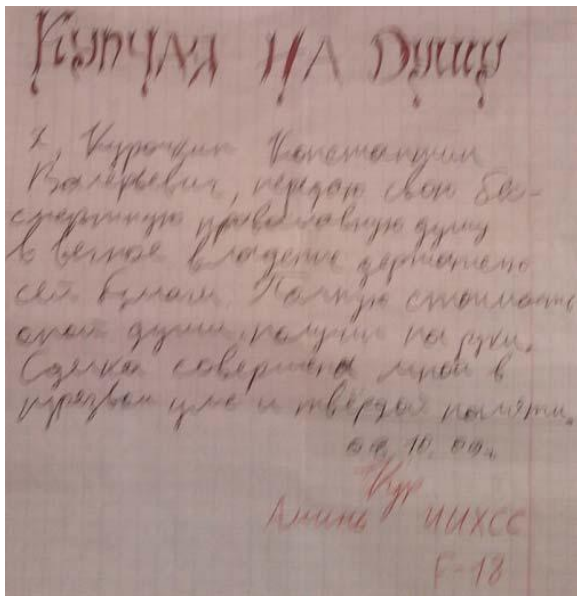 Купчая на Душу
Я, Курочкин Константин
Валерьевич, передаю свою бес-
смертную православную душу
в вечное владение держателю
сей бумаги. Полную стоимость
оной души получил на руки.
Сделка совершена мной в
трезвом уме и твёрдой памяти.
Кур
Аминь ИИХСС
F-18